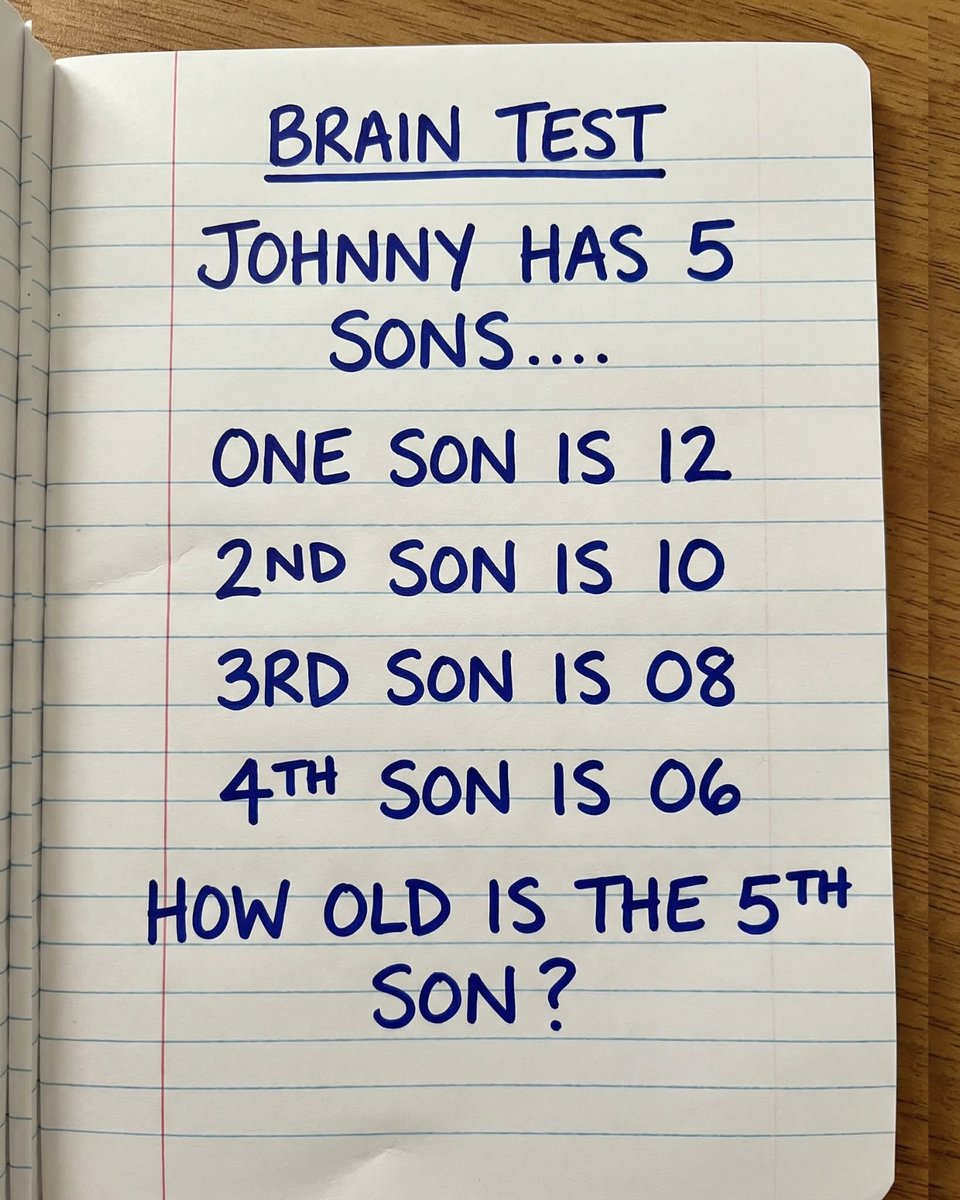 BRAIN TEST
JOHNNY HAS 5
SONS....
ONE SON IS 12
2ND SON IS 10
3RD SON IS 08
4TH SON IS 06
HOW OLD IS THE 5TH
SON?